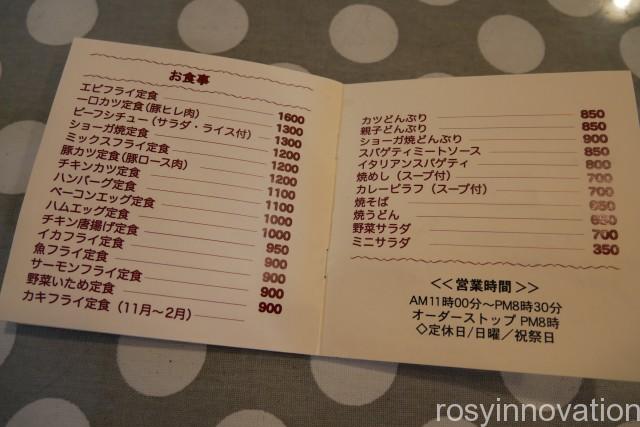 お食事
エビフライ定食
一口カツ定食(豚ヒレ肉)
ビーフシチュー(サラダ・ライス付)
ショーガ焼定食
ミックスフライ定食
豚カツ定食(豚ロース肉)
チキンカツ定食
ハンバーグ定食
ベーコンエッグ定食
ハムエッグ定食
チキン唐揚げ定食
イカフライ定食
魚フライ定食
サーモンフライ定食
野菜いため定食
カキフライ定食(11月〜2月)
1600
1300
1300
1200
1200
1200
1100
1100
1000
1000
950
900
900
900
900
カツどんぶり 850
親子どんぶり 850
ショーガ焼どんぶり 900
スパゲティミートソース 850
イタリアンスパゲティ 800
焼めし(スープ付) 700
カレーピラフ(スープ付) 700
焼そば 650
焼うどん 650
野菜サラダ 700
ミニサラダ 350
<<営業時間>>
AM11時00分〜PM8時30分
オーダーストップ PM8時
◇定休日/日曜/祝祭日
rosyinnovation